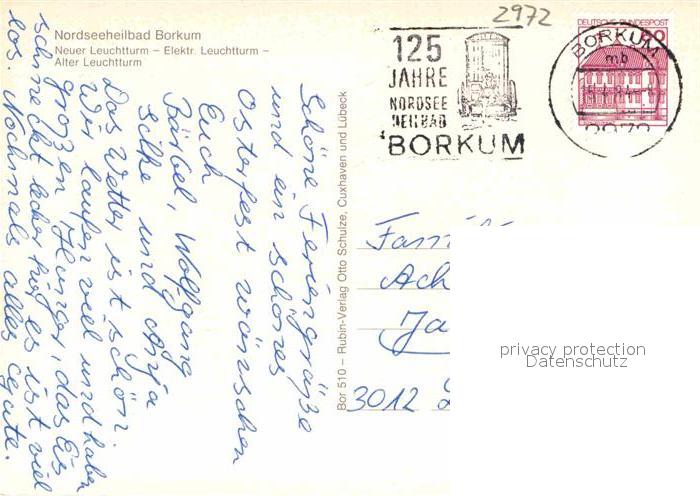 Nordseeheilbad Borkum
Neuer Leuchtturm – Elektr. Leuchtturm –
Alter Leuchtturm
Schöne Feriengrüße
und ein schönes
Osterfest wünschen
Euch
Bärbel, Wolfgang
Silke und Anja
Das Wetter ist schön.
Wir laufen viel und haben
großen Hunger, das Eis
schmeckt lecker hier, es ist viel
los. Nochmals alles Gute.
Bor 510 – Rubin-Verlag Otto Schulze, Cuxhaven und Lübeck
2972
125
JAHRE
NORDSEE
HEILBAD
BORKUM
DEUTSCHE BUNDESPOST
60
BORKUM
mb
2972
Fam
Ach
Ja
3012 L
privacy protection
Datenschutz